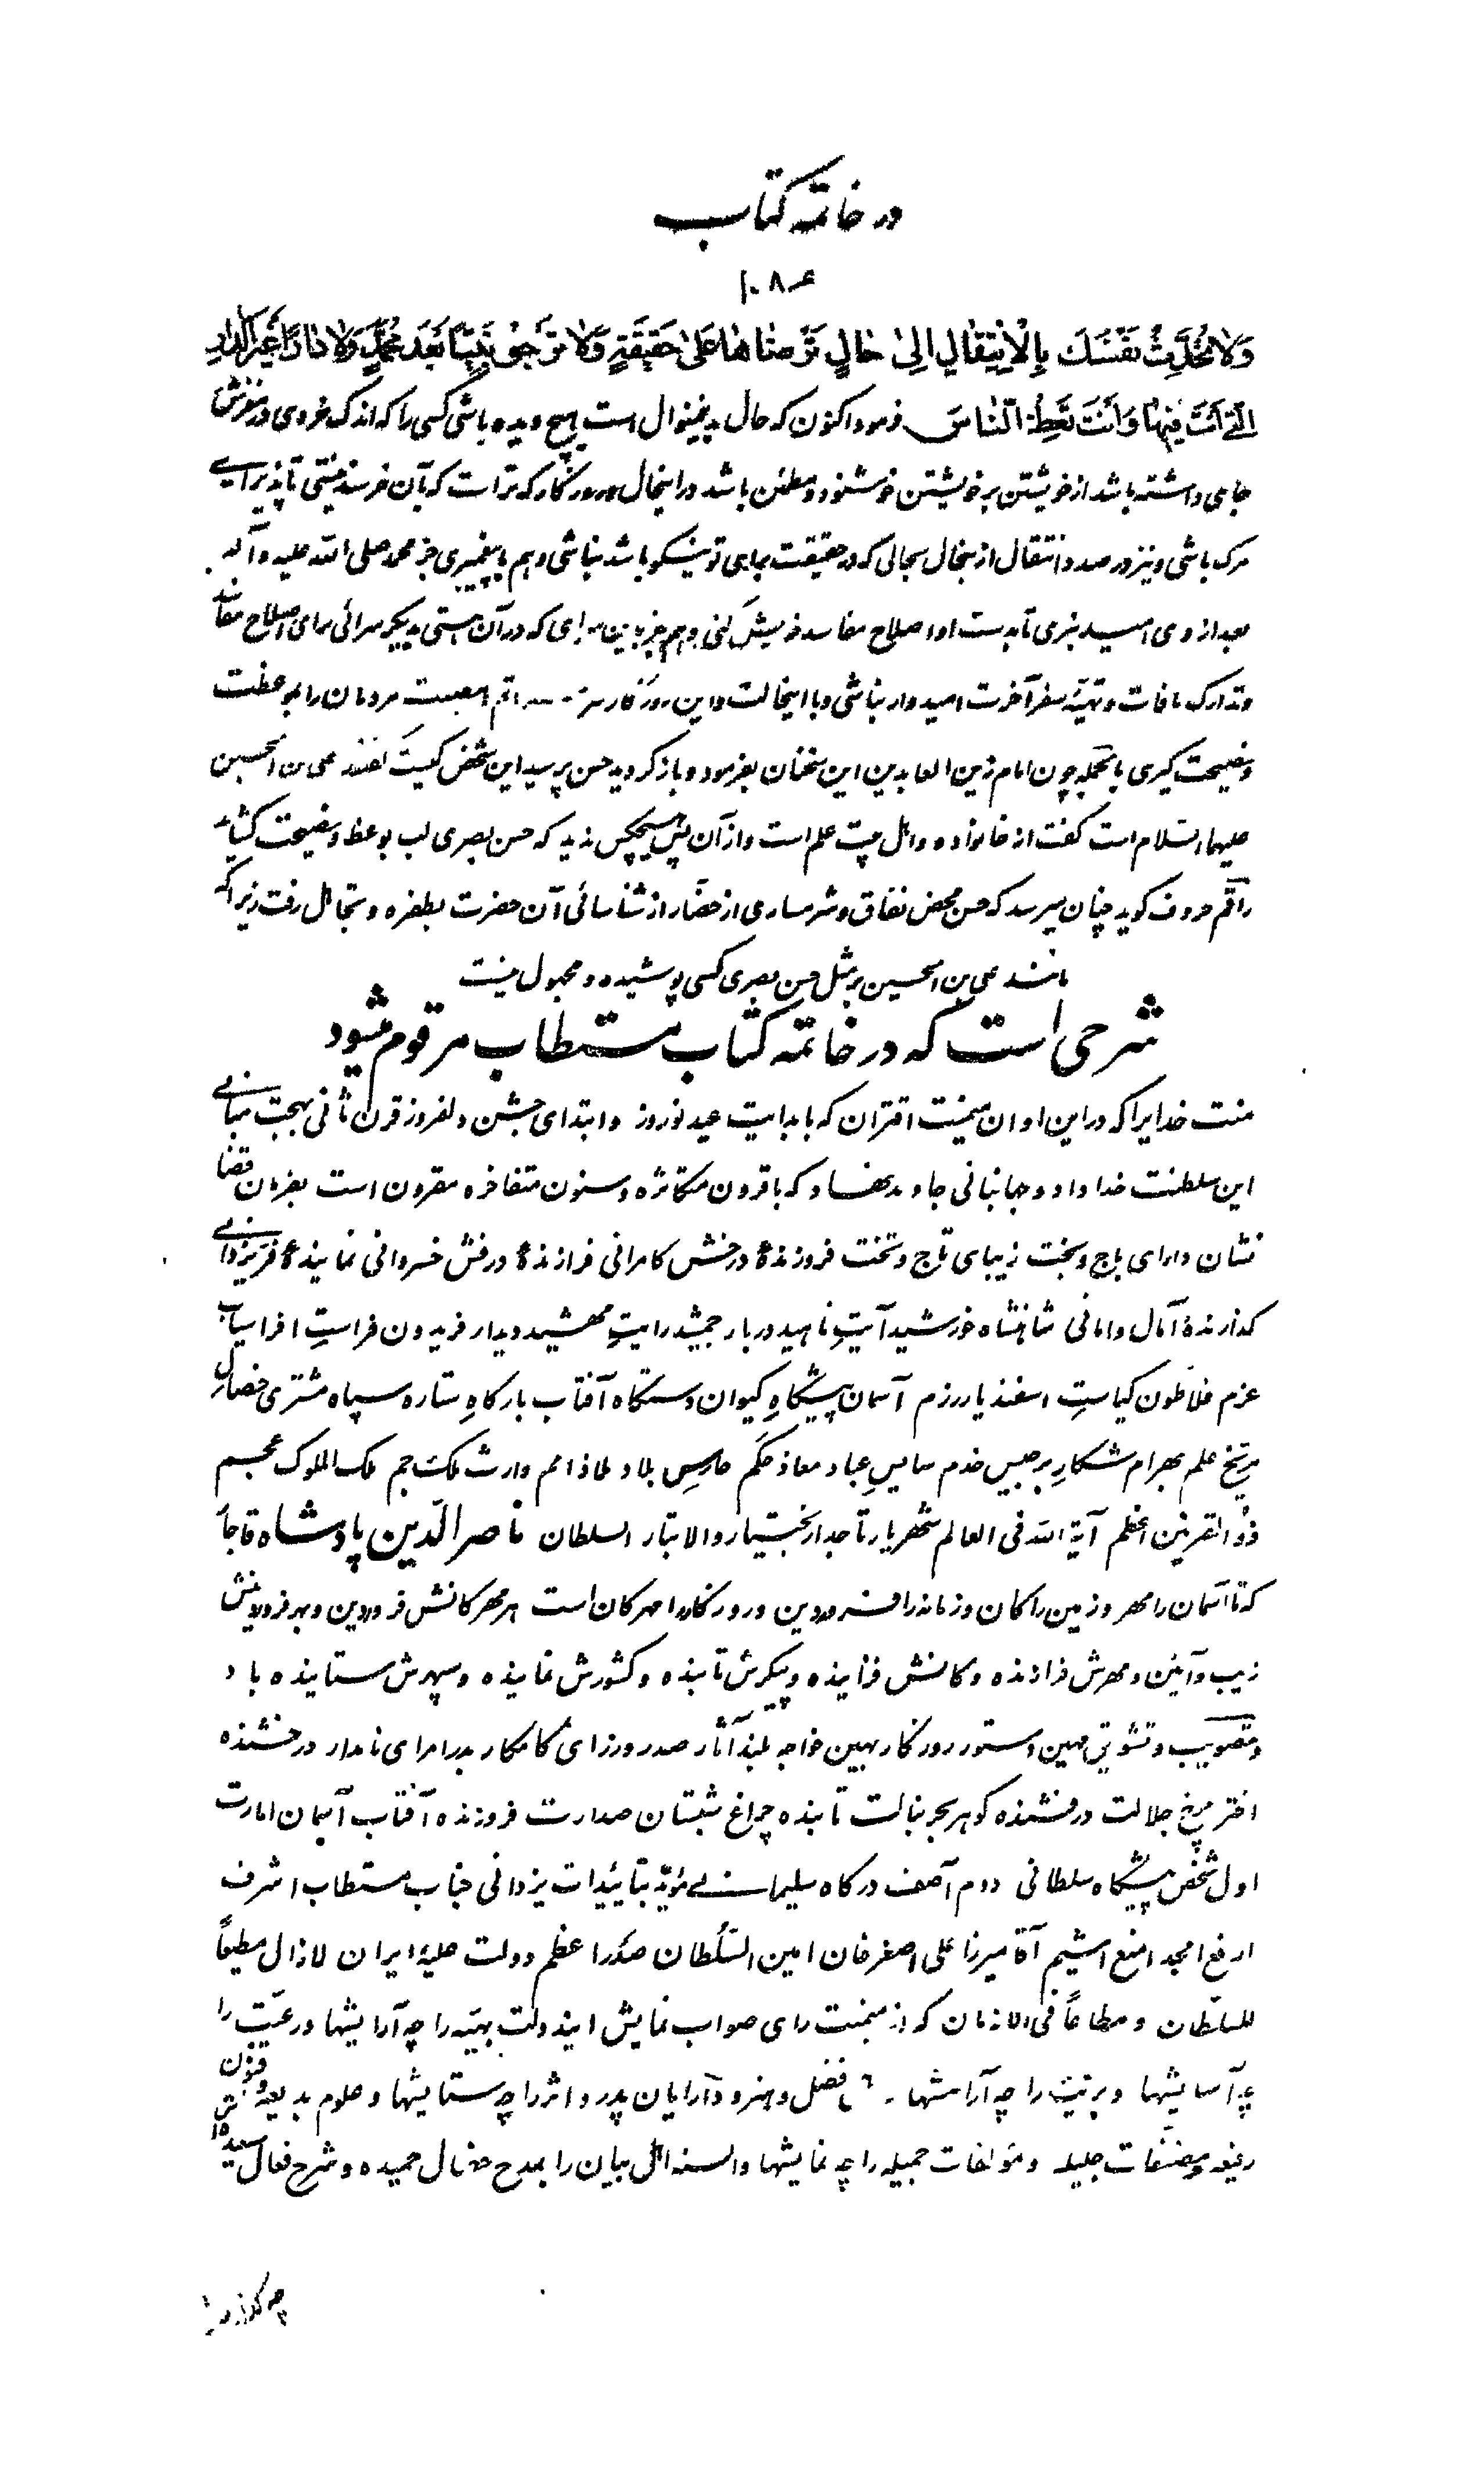 در خاتمه کتاب
۱۰۸۶
وَلا تُحَدِّثُ نَفْسَكَ بِالْاِنْتِقالِ اِلىٰ حالٍ تَرْضاها عَلىٰ حَقيقَةٍ وَلا تَرْجُو نَبِيًّا بَعْدَ مُحَمَّدٍ وَلا دارًا غَيْرَ الدّارِ
الَّتي اَنْتَ فيها وَاَنْتَ تَعِظُ النّاسَ فرمود اکنون که حال بدینمنوال است هیچ دیده باشی کسی را که اندک خردی در مغزش
جای داشته باشد از خویشتن بر خویشتن خوشنود و مطمئن باشد در اینحال و روزگار که تراست که بآن خرسند نیستی تا پذیرای
مرک باشی و نیز در صدد انتقال از ینحال بحالی که در حقیقت بجای تو نیکو باشد نباشی و هم با پیغمبری جز محمد صلی الله علیه و آله
بعد از وی امید نبری تا بدست او اصلاح مفاسد خویش کنی و هم جز باین سرای که در آن هستی بدیگر سرائی برای اصلاح مفاسد
و تدارک مافات و تهیّه سفر آخرت امیدوار نباشی و با اینحالت و این روزگار مردمان را بموعظت
و نصیحت گیری بالجمله چون امام زین العابدین این سخنان بفرمود و باز کردید حسن پرسید این شخص کیست گفتند علی بن الحسین
علیهما السلام است گفت از خانواده و اهل بیت علم است و از آن پس هیچکس ندید که حسن بصری لب بوعظ و نصیحت کشاید
راقم حروف کوید چنان میرسد که حسن محض نفاق و شرمساری از حضّار از شناسائی آن حضرت بطفره و تجاهل رفت زیرا که
مانند علی بن الحسین بر مثل حسن بصری کسی پوشیده و مجهول نیست
شرحی است که در خاتمه کتاب مستطاب مرقوم میشود
منت خدایرا که در این اوان میمنت اقتران که با بدایت عید نوروز و ابتدای جشن دلفروز قرن ثانی بهجت مبانی
این سلطنت خداداد و جهانبانی جاوید نهاد که با قرون متکاثره و سنون متفاخره مقرون است بفرمان قضا
نشان دارای باج و بخت زیبای تاج و تخت فروزندهٔ درخش کامرانی فرازندهٔ درفش خسروانی نمایندهٔ فرّ یزدانی
کذارندهٔ آمال و امانی شاهنشاه خورشید آیتِ ناهید دربار جمشید رایتِ مهشید دیدار فریدون فراستِ افراسیاب
عزم فلاطون کیاستِ اسفندیار رزم آسمان پیشگاهِ کیوان دستگاه آفتاب بارکاهِ ستاره سپاه مشتری خصالِ
مریّخ علم بهرام شکارِ برجیس خدم سایسِ عباد معاذ حکم حارسِ بلاد ملاذ امم وارث ملک جم ملک الملوک عجم
ذو القرنین اعظم آیة الله فی العالم شهریار تاجدار بختیار والا تبار السلطان ناصر الدّین پادشاه قاجار
که تا آسمان را مهر و زمین را کان و زمانه را فروردین و روزگار را مهرکان است هر مهرکانش فروردین و هر فروردینش
زیب و آئین و مهرش فرازنده و کانش فزاینده و پیکرش تابنده و کشورش نماینده و سپهرش ستاینده باد
و تصویب و تشویق مهین دستور روزکار بهین خواجه بلند آثار صدر وزرای کامکار بدر امرای نامدار درخشنده
اختر برج جلالت درفشنده کوهر بحر نبالت تابنده چراغ شبستان صدارت فروزنده آفتاب آسمان امارت
اول شخص پیشگاه سلطانی دوم آصف درگاه سلیمانی مؤیّد بتائیدات یزدانی جناب مستطاب اشرف
ارفع امجد امنع اشیم آقا میرزا علی اصغر خان امین السّلطان صدر اعظم دولت علیهٔ ایران لا زال مطیعاً
للسلّطان و مطاعاً فی الازمان که از میمنت رای صواب نمایش ایندولت بهیّه را چه آرایشها و رعیّت را
چه آسایشها و بریّت را چه آرامشها فضل و هنر و دارایان پدر و اثر را چه ستایشها و علوم بدیعه و فنون
رفیعه و مصنّفات جلیله و مؤلفات جمیله را چه نمایشها و السنه اهل بیان را بمدح خصال حمیده و شرح فعال سعیده اش